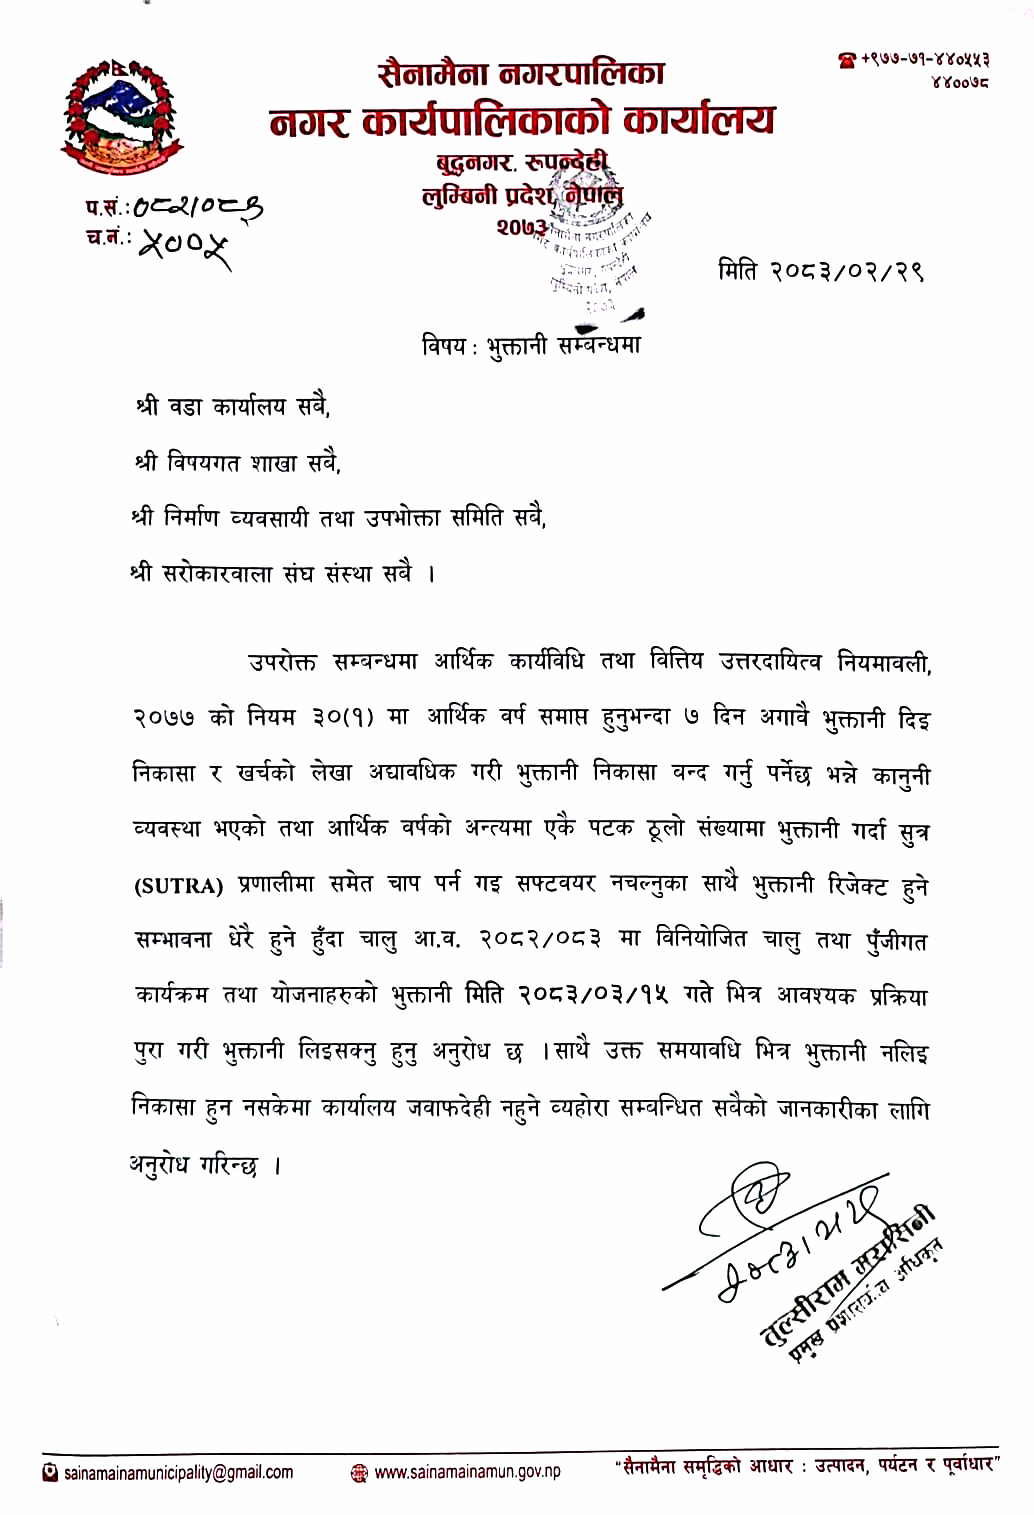 सैनामैना नगरपालिका
नगर कार्यपालिकाको कार्यालय
बुद्धनगर, रुपन्देही
लुम्बिनी प्रदेश, नेपाल
२०७३
☎ +९७७-७१-४४०५५३
४४००७८
प.सं.: ०८२/०८३
च.नं.: ५००५
मिति २०८३/०२/२९
विषय : भुक्तानी सम्बन्धमा
श्री वडा कार्यालय सबै,
श्री विषयगत शाखा सबै,
श्री निर्माण व्यवसायी तथा उपभोक्ता समिति सबै,
श्री सरोकारवाला संघ संस्था सबै ।
उपरोक्त सम्बन्धमा आर्थिक कार्यविधि तथा वित्तिय उत्तरदायित्व नियमावली,
२०७७ को नियम ३०(१) मा आर्थिक वर्ष समाप्त हुनुभन्दा ७ दिन अगावै भुक्तानी दिइ
निकासा र खर्चको लेखा अद्यावधिक गरी भुक्तानी निकासा वन्द गर्नु पर्नेछ भन्ने कानुनी
व्यवस्था भएको तथा आर्थिक वर्षको अन्त्यमा एकै पटक ठूलो संख्यामा भुक्तानी गर्दा सुत्र
(SUTRA) प्रणालीमा समेत चाप पर्न गइ सफ्टवयर नचल्नुका साथै भुक्तानी रिजेक्ट हुने
सम्भावना धेरै हुने हुँदा चालु आ.व. २०८२/०८३ मा विनियोजित चालु तथा पुँजीगत
कार्यक्रम तथा योजनाहरुको भुक्तानी मिति २०८३/०३/१५ गते भित्र आवश्यक प्रक्रिया
पुरा गरी भुक्तानी लिइसक्नु हुनु अनुरोध छ ।साथै उक्त समयावधि भित्र भुक्तानी नलिइ
निकासा हुन नसकेमा कार्यालय जवाफदेही नहुने व्यहोरा सम्बन्धित सबैको जानकारीका लागि
अनुरोध गरिन्छ ।
तुल्सीराम मरासिनी
प्रमुख प्रशासकीय अधिकृत
sainamainamunicipality@gmail.com
www.sainamainamun.gov.np
"सैनामैना समृद्धिको आधार : उत्पादन, पर्यटन र पूर्वाधार"